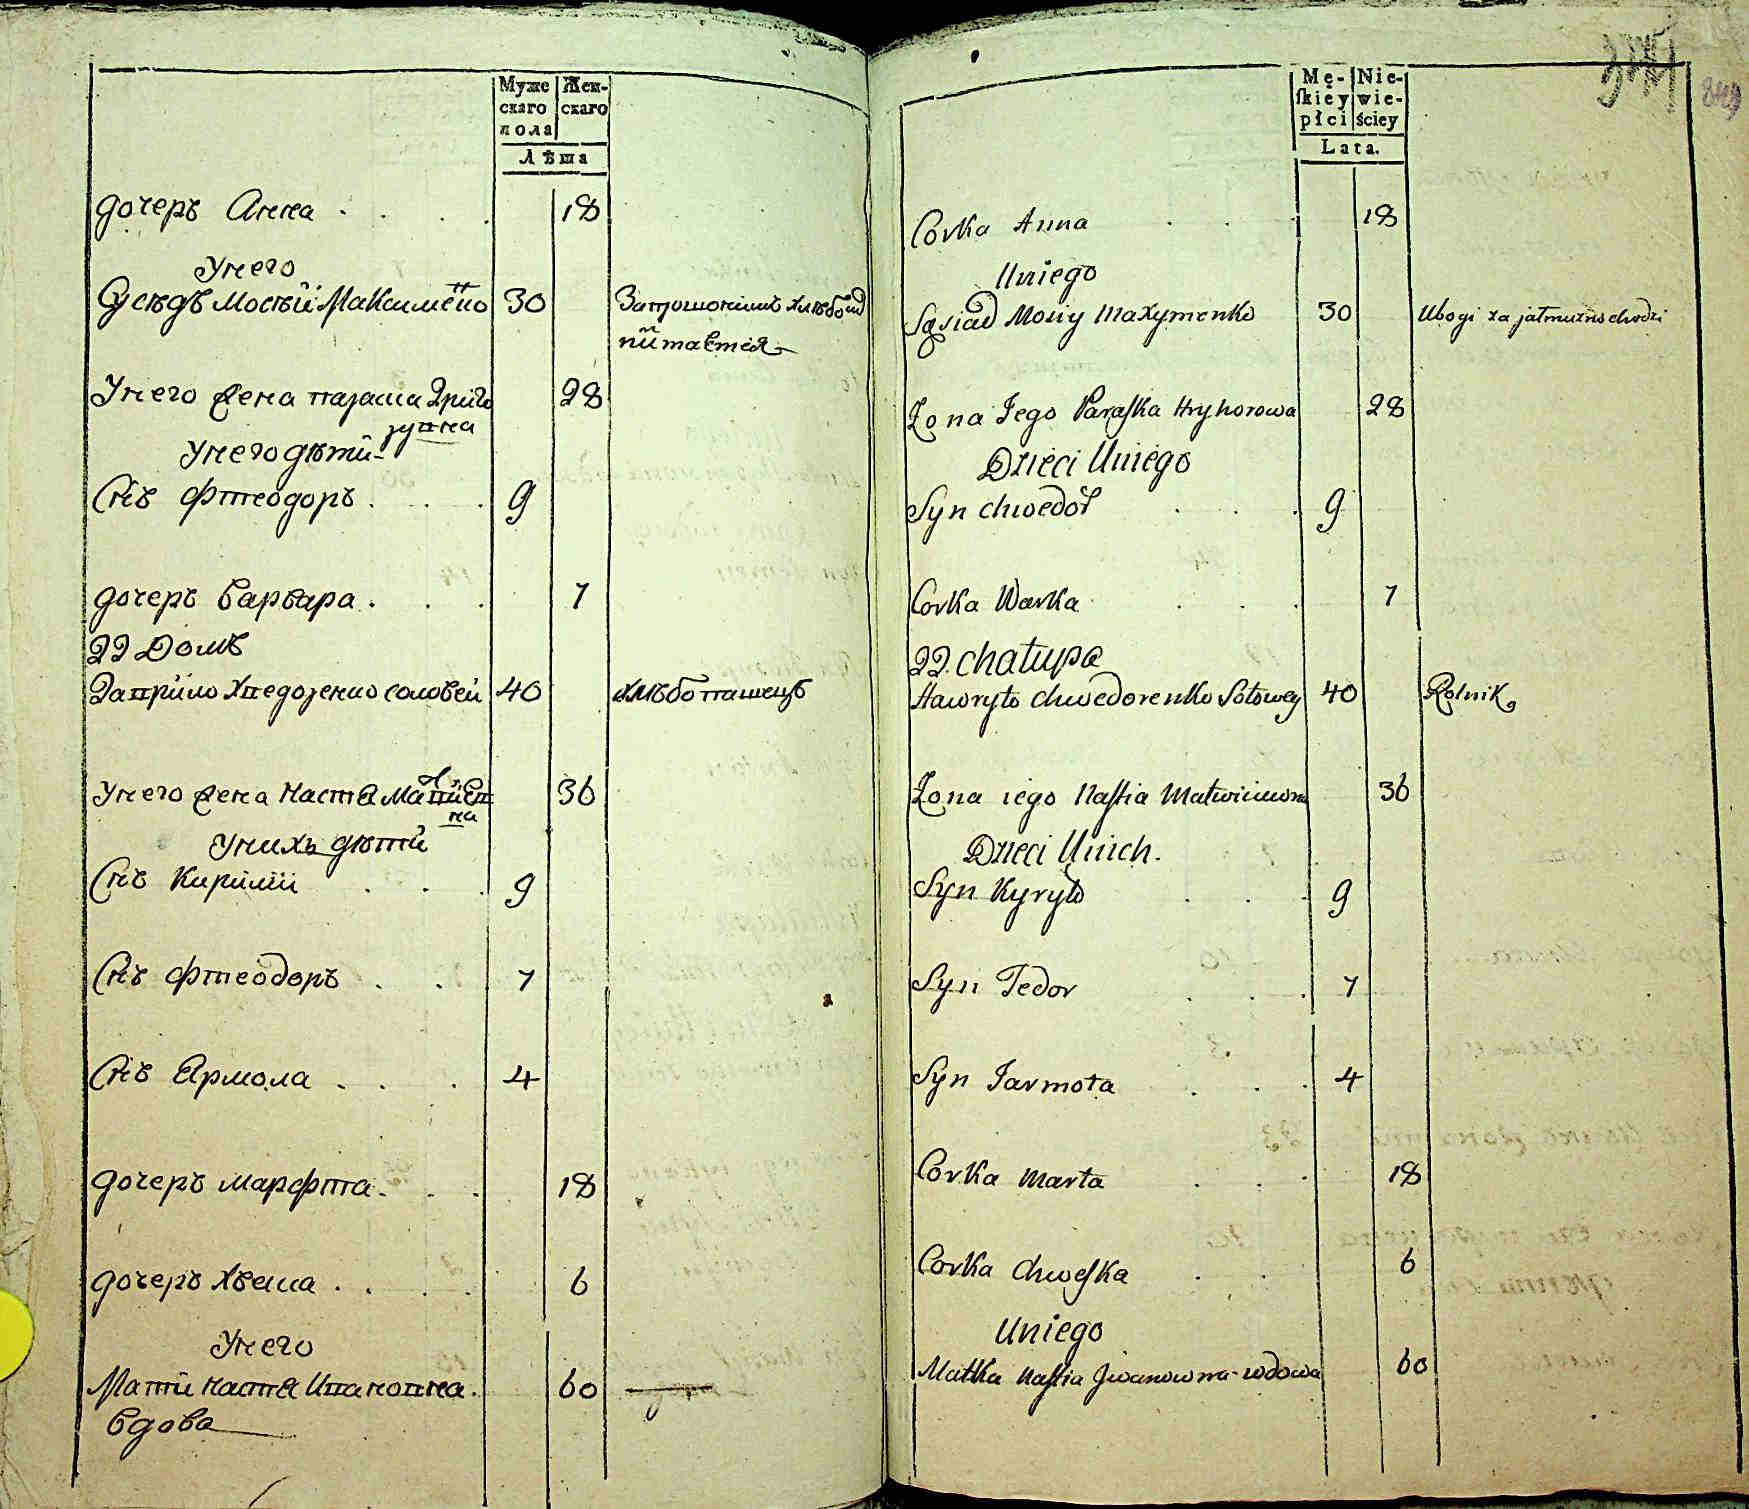 Муже
скаго
пола
Жен-
скаго
Лѣта
дочеръ Анна . . . . 18
У него
Сусѣдъ Мосѣй Макимѣно 30
питается
У него жена параша
28
У него дѣти
Снъ Фтеодоръ . . . 9
дочеръ Варвара . . . 7
22 Домъ
Гаврило Хведоренко соловей 40 хлѣбопашецъ
У него жена Настя
на
36
У нихъ дѣти
Снъ Кирило . . . 9
Снъ Фтеодоръ . . 7
Снъ Ярмола . . . 4
дочеръ Марфта . . . 18
дочеръ Хвеша . . . . 6
У него
Мати Настя Ивановна . 60
Вдова
Mę-
skiey
płci
Nie-
wie-
ściey
Lata.
349
Corka Anna . . . 18
Uniego
Sąsiad Mosiy Maxymenko 30 Ubogi za jałmużno chodzi
Zona Jego Paraska Hryhorowa 28
Dzieci Uniego
Syn Chwedor . . . 9
Corka Warka . . . 7
22 Chałupa
Hawryło Chwedorenko Sołowey 40 Rolnik
Zona iego Nastia Matwiiowna 36
Dzieci Unich.
Syn Kyryło . . . 9
Syn Tedor . . . 7
Syn Jarmoła . . . 4
Corka Marta . . . 18
Corka Chweska . . 6
Uniego
Matka Nastia Jwanowna wdowa 60